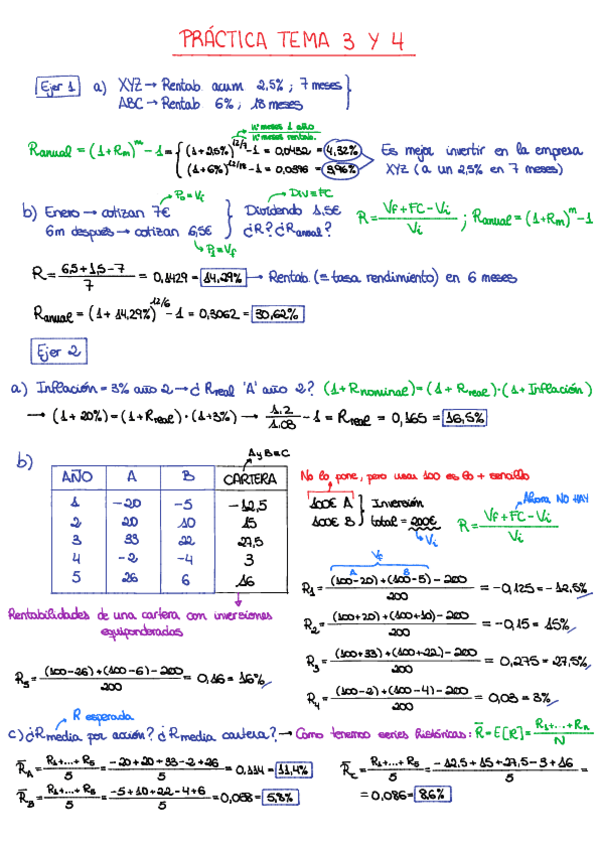 PRÁCTICA TEMA 3 Y 4
Ejer 1 a) XYZ → Rentab acum 2,5% ; 7 meses
ABC → Rentab 6% ; 18 meses
nº meses 1 año
nº meses rentab.
Ranual = (1+Rm)^m - 1 = { (1+2,5%)^12/7 - 1 = 0,0432 = 4,32%
(1+6%)^12/18 - 1 = 0,0396 = 3,96%
Es mejor invertir en la empresa
XYZ (a un 2,5% en 7 meses)
P₀ = Vi
b) Enero → cotizan 7€
6m después → cotizan 6,5€
P₁ = Vf
Div = FC
Dividendo 1,5€
¿R? ¿Ranual?
R = Vf + FC - Vi / Vi ; Ranual = (1+Rm)^m - 1
R = 6,5 + 1,5 - 7 / 7 = 0,1429 = 14,29% → Rentab. (= tasa rendimiento) en 6 meses
Ranual = (1 + 14,29%)^12/6 - 1 = 0,3062 = 30,62%
Ejer 2
a) Inflación = 3% año 2 → ¿Rreal 'A' año 2? (1+Rnominal) = (1 + Rreal)·(1 + Inflación)
→ (1 + 20%) = (1+Rreal)·(1+3%) → 1.2 / 1.03 - 1 = Rreal = 0,165 = 16,5%
b)
A y B = C
AÑO A B CARTERA
1 -20 -5 -12,5
2 20 10 15
3 33 22 27,5
4 -2 -4 3
5 26 6 16
Rentabilidades de una cartera con inversiones
equiponderadas
No lo pone, pero usar 100 es lo + sencillo
100€ A
100€ B
Inversión
total = 200€
Vi
Ahora NO HAY
R = Vf + FC - Vi / Vi
Vf
A B
R₁ = (100-20)+(100-5)-200 / 200 = -0,125 = -12,5%
R₂ = (100+20)+(100+10)-200 / 200 = -0,15 = 15%
R₃ = (100+33)+(100+22)-200 / 200 = 0,275 = 27,5%
R₄ = (100-2)+(100-4)-200 / 200 = 0,03 = 3%
R₅ = (100-26)+(100-6)-200 / 200 = 0,16 = 16%
R esperada
c) ¿Rmedia por acción? ¿Rmedia cartera? → Como tenemos series históricas: R̄ = E[R] = R₁+...+Rn / N
R̄A = R₁+...+R₅ / 5 = -20+20+33-2+26 / 5 = 0,114 = 11,4%
R̄B = R₁+...+R₅ / 5 = -5+10+22-4+6 / 5 = 0,058 = 5,8%
R̄c = R₁+...+R₅ / 5 = -12,5+15+27,5-3+16 / 5 =
= 0,086 = 8,6%